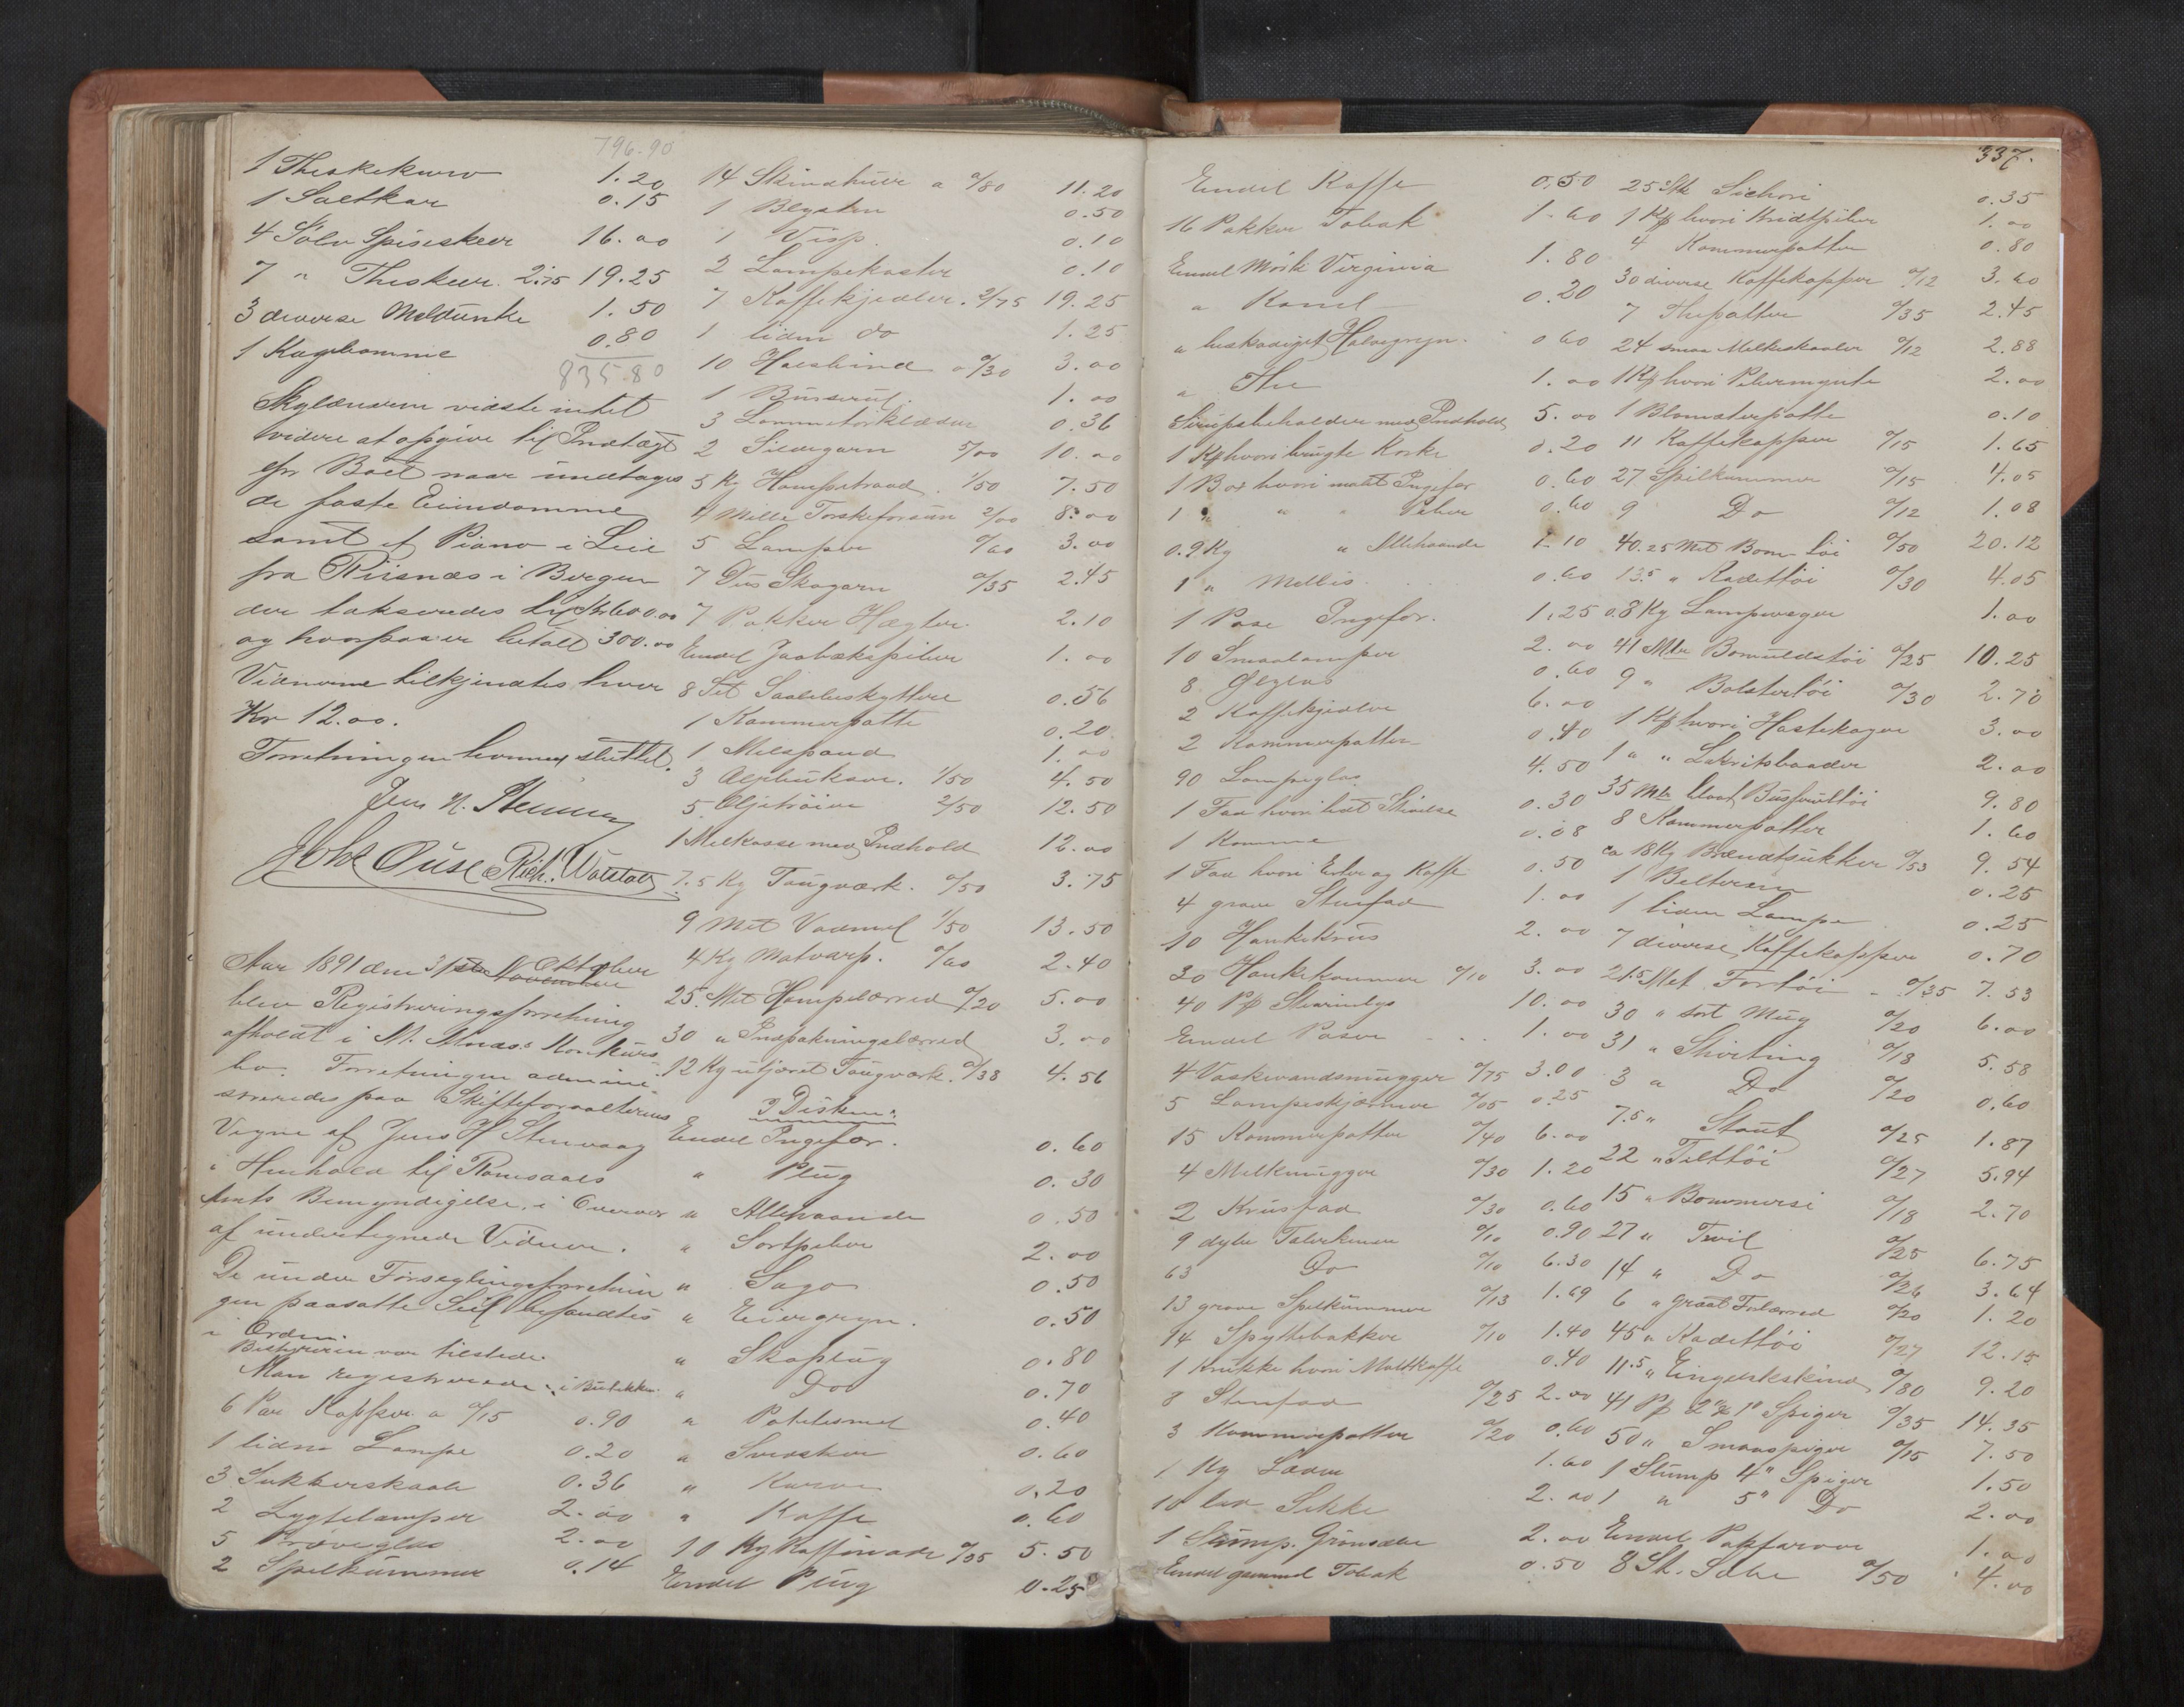 796.90
1 Theskekurv 1.20
1 Saltkar 0.15
4 Sølv Spiseskeer 16.00
7 " Theskeer. 2.75 19.25
3 diverse Meldunke 1.50
1 Kagekomme 0.80
835.80
Skyldneren vidste intet
videre at opgive til Indtægt
for Boet naar undtages
de faste Eiendomme
samt et Piano i Leie
fra Riisnæs i Bergen
der takseredes til Kr 600.00
og hvorpaa er betalt 300.00
Vidnerne tilkjendtes hver
Kr 12.00.
Forretningen hermed sluttet.
Jens H.
Johs Ouse Rich.
Aar 1891 den 31te Oktober
November
blev Registreringsforretning
afholdt i M. Konkurs
bo. Forretningen admini
streredes paa Skifteforvalterens
Vegne af Jens H Stenvaag
i Henhold til Romsdals
Amts Bemyndigelse, i Overvær
af undertegnede Vidner.
De under Forseglingsforretnin
gen paasatte Seil befandtes
i Orden.
Bestyreren var tilstede.
Man registrerede: i Butikken.
6 Par Kopper a 0/15 0.90
1 liden Lampe 0.20
3 Sukkerskaale 0.36
2 Lygtelamper 2.00
5 Prøveglas 2.00
2 Spelkummer 0.14
14 Skindhuer a 0/80 11.20
1 Blysten 0.50
1 Visp. 0.10
2 Lampekoster 0.10
7 Kaffekjedler. 2/75 19.25
1 liden do 1.25
10 Halsbind a 0/30 3.00
1 Busserul. 1.00
3 Lommetørklæder 0.36
2 Sildegarn 5/00 10.00
5 Kg Hampetraad. 1/50 7.50
4 Mille Torskeforsün 2/00 8.00
5 Lamper 0/60 3.00
7 Dus Skogarn 0/35 2.45
7 Pakker Hægter. 2.10
Endel Jaabækspiber 1.00
8 Set Saalebeskyttere 0.56
1 Kammerpotte 0.20
1 Melspand 1.00
3 Oljebukser. 1/50 4.50
5 Oljetrøier 2/50 12.50
1 Melkasse med Indhold 12.00
7.5 Kg Tougværk. 0/50 3.75
9 Met Vadmel 1/50 13.50
4 Kg Notvarp. 0/60 2.40
25. Met Hampelærred 0/20 5.00
30 " Indpakningslærred 3.00
12 Kg utjæret Tougværk. 0/38 4.56
I Disken:
Endel Ingefær. 0.60
" Plug 0.30
" Allehaande 0.50
" Sortpeber 2.00
" Sago 0.50
" Eiergryn. 0.50
" Skaplug 0.80
" Do 0.70
" Potetesmel 0.40
" Svedsker 0.60
" Karve 0.20
" Kaffe 0.60
10 Kg Raffinade 0/55 5.50
Endel Plug 0.25
337.
Endel Kaffe 0.50
16 Pakker Tobak 1.60
Endel Mørk Virginia 1.80
" Kanel 0.20
" beskadiget Havregryn. 0.60
" The 1.00
Sirupsbeholder med Indhold 5.00
1 Kß hvori brugte Korke 0.20
1 Box hvori malt Ingefær 0.60
1 " " " Peber 0.60
0.9 Kg " Allehaande 1.10
1 " Mellis. 0.60
1 Pose Ingefær. 1.25
10 Smaalamper 2.00
8 0.60
2 Kaffekjedler 6.00
2 Kammerpotter 0.40
90 Lampeglas 4.50
1 Fad hvori lidt Stivelse 0.30
1 Komme 0.08
1 Fad hvori Erter og Kaffe 0.50
4 grove Stenfad 1.00
10 Hankekrus 2.00
30 Hankekommer 0/10 3.00
40 Pß Stearinlys 10.00
Endel Poser 1.00
4 Vaskevandsmugger 0/75 3.00
5 Lampeskjærmer 0/05 0.25
15 Kammerpotter 0/40 6.00
4 Melkemugger 0/30 1.20
2 Krusfad 0/30 0.60
9 dybe Talerkener 0/10 0.90
63 Do 0/10 6.30
13 grove Spelkummer 0/13 1.69
14 Spyttebakker 0/10 1.40
1 Krukke hvori Maltkaffe 0.40
8 Stenfad 0/25 2.00
3 Kammerpotter 0/20 0.60
1 Kg Læder 1.60
10 lav Sekke 2.00
1 Stump. Grønsæbe 2.00
Endel gammel Tobak 0.50
25 Stk Sichori 0.35
1 Kß hvori Kridtpiber 1.00
4 Kammerpotter 0.80
30 diverse Kaffekopper 0/12 3.60
7 Thepotter 0/35 2.45
24 smaa Melkeskaaler 0/12 2.88
1 Kß hvori Pebermynte 2.00
1 Blomsterpotte 0.10
11 Kaffekopper 0/15 1.65
27 Spilkummer 0/15 4.05
9 Do 0/12 1.08
40.25 Met Bom. tøi 0/50 20.12
13.5 " Kadettøi 0/30 4.05
0.8 Kg Lampevæger 1.00
41 Mtr Bomuldstøi 0/25 10.25
9 " Bolstertøi 0/30 2.70
1 Kß hvori Hostekager 3.00
1 " " Lakritsbaader 2.00
35 Mtr blaat Busserultøi 9.80
8 Kammerpotter 1.60
ca 18 Kg Brændtsukker 0/53 9.54
1 Belterem 0.25
1 liden Lampe 0.25
7 diverse Kaffekopper 0.70
21.5 Met Fortøi - 0/35 7.53
30 " sort Mug 0/20 6.00
31 " Shirting 0/18 5.58
3 " Do 0/20 0.60
7.5 " Stout 0/25 1.87
22 " Telttøi 0/27 5.94
15 " Bommersi 0/18 2.70
27 " Tvil 0/25 6.75
14 " Do 0/26 3.64
6 " graat Forlærred 0/20 1.20
45 " Kadettøi 0/27 12.15
11.5 " Eingelskskind 0/80 9.20
41 Pß 2" & 1" Spiger 0/35 14.35
50 " Smaaspiger 0/15 7.50
1 Stump 4" Spiger 1.50
1 " 5" Do 2.00
Endel Papfarver 1.00
8 St. Sæbe 0/50 4.00